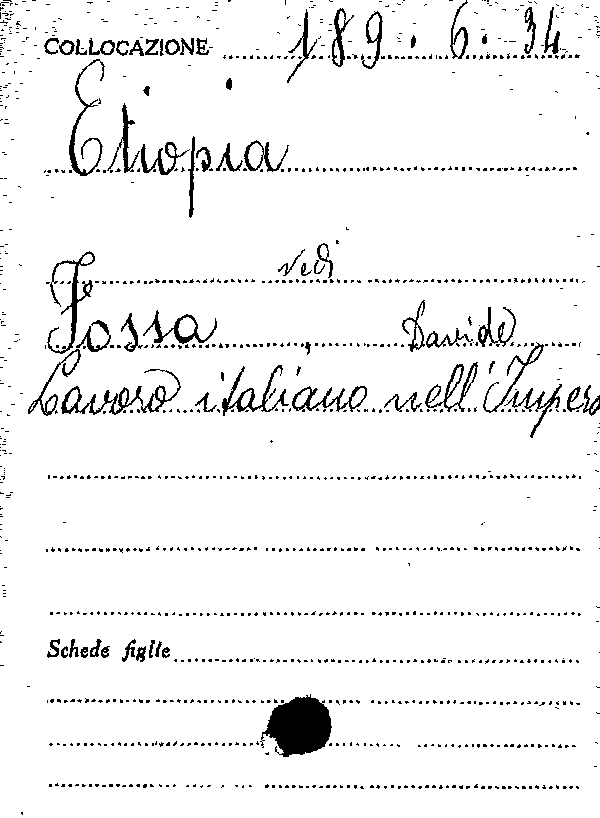 COLLOCAZIONE 189.6.34
Etiopia
vedi
Fossa, Davide
Lavoro italiano nell'Impero
Schede figlie